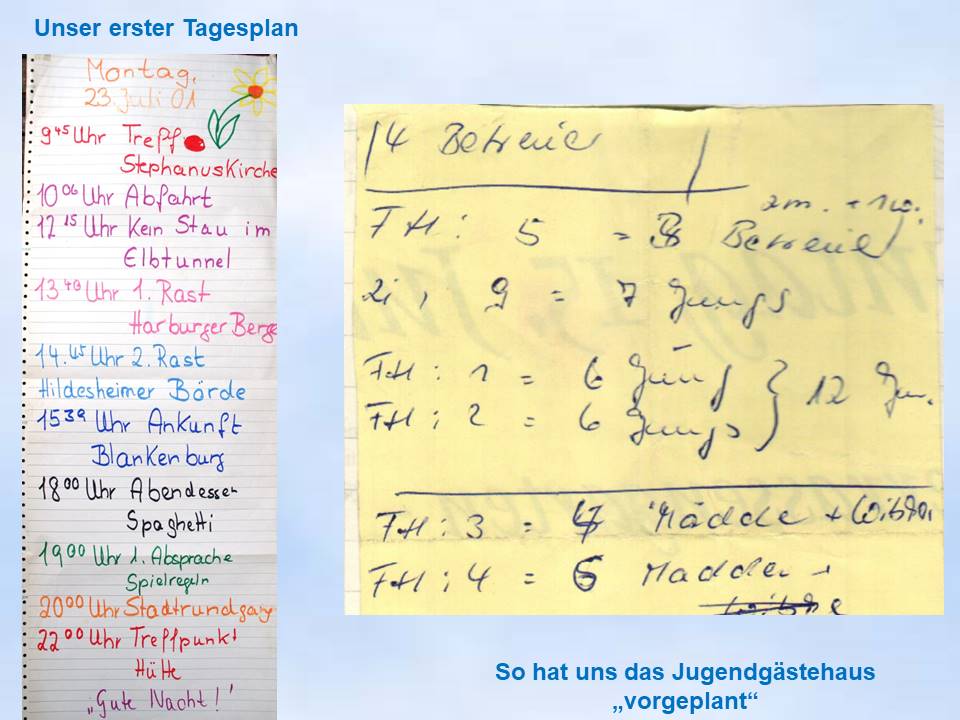 Unser erster Tagesplan
Montag,
23. Juli 01
9 45 Uhr Treff
Stephanuskirche
10 06 Uhr Abfahrt
12 15 Uhr Kein Stau im
Elbtunnel
13 40 Uhr 1. Rast
Harburger Berge
14.45 Uhr 2. Rast
Hildesheimer Börde
15 39 Uhr Ankunft
Blankenburg
18 00 Uhr Abendessen
Spaghetti
19 00 Uhr 1. Absprache
Spielregeln
20 00 Uhr Stadtrundgang
22 00 Uhr Treffpunkt
Hütte
„Gute Nacht!"
4 Betreuer
2m. + 1w.
FH: 5 = Betreuer
Zi, 9 = 7 Jungs
FH: 1 = 6 Jungs
FH: 2 = 6 Jungs } 12 Jun.
FH: 3 = Mädche +
FH: 4 = 6 Mädchen
So hat uns das Jugendgästehaus
„vorgeplant“